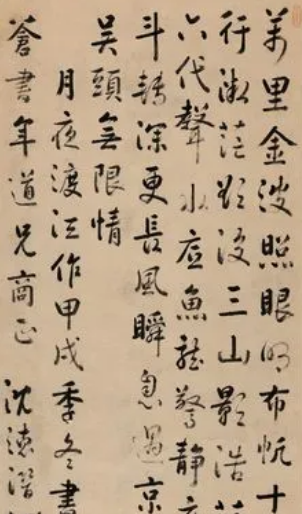 萬里金波照眼明布帆十
行微茫欲没三山影浩
六代聲水底魚龍驚静
斗轉深更長風瞬息過京
吴頭無限情
月夜渡江作甲戌季冬書
蒼書年道兄商正 沈德潛